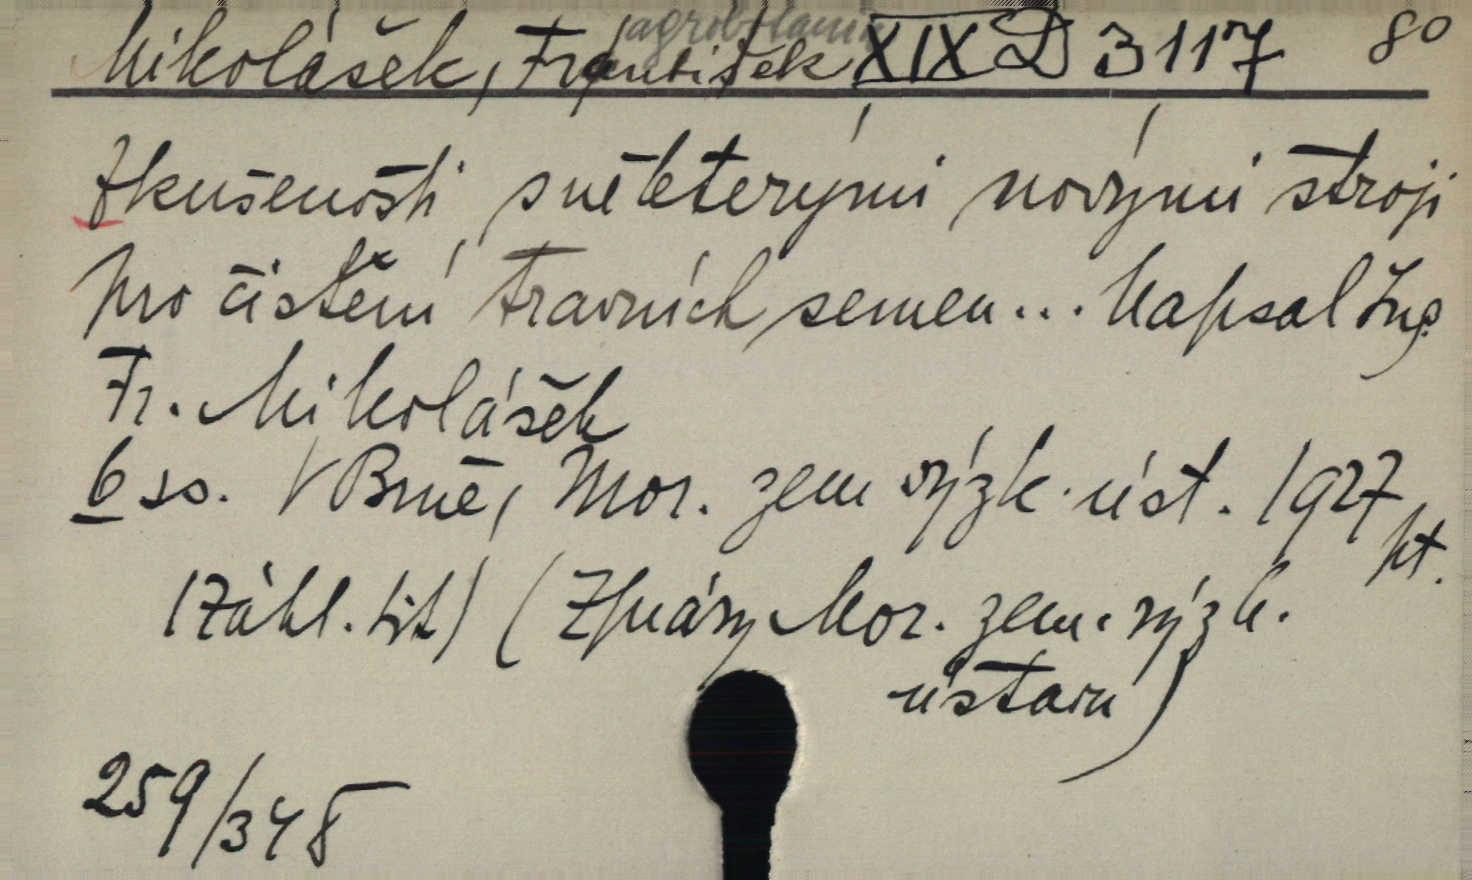 agrobotanik
Mikolášek, František XIX D 3117 8°
Zkušenosti s některými novými stroji
pro čistění travních semen... Napsal Ing.
Fr. Mikolášek
6 ss. V Brně, Mor. zem výzk. úst. 1927
pt.
(Záhl. tit) (Zprávy Mor. zem. výzk.
ústavu)
259/345